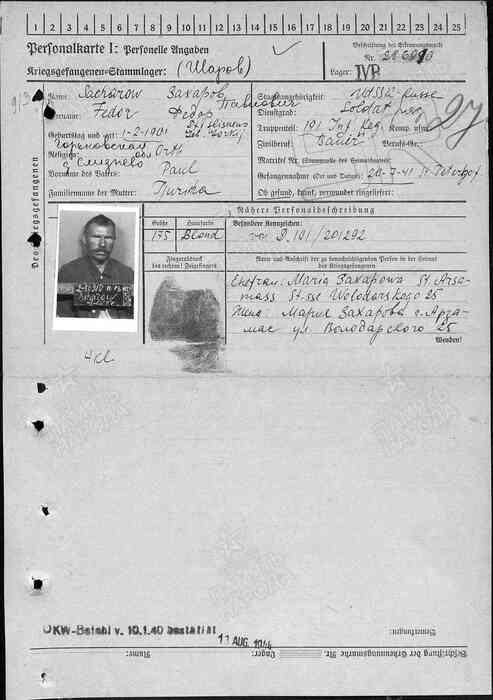 1 2 3 4 5 6 7 8 9 10 11 12 13 14 15 16 17 18 19 20 21 22 23 24 25
Personalkarte I: Personelle Angaben
Beschriftung der Erkennungsmarke
Kriegsgefangenen-Stammlager: (Шаров)
Nr.
Lager: IVB
Des Kriegsgefangenen
Name: Sacharow Захаров
Staatsangehörigkeit: UdSSR-Russe
Vorname: Fedor Федор Павлович
Dienstgrad: Soldat
Truppenteil: 191 Inf. Reg. Komp. usw.
Geburtstag und -ort: 1-2-1901
Горьковская обл
Zivilberuf: Bauer Berufs-Gr.:
Religion: Orth
Matrikel Nr. (Stammrolle des Heimatstaates)
Vorname des Vaters: Paul
Gefangennahme (Ort und Datum): 20-9-41 St Peterhof
Familienname der Mutter:
Ob gesund, krank, verwundet eingeliefert:
Nähere Personalbeschreibung
Größe
Haarfarbe
Besondere Kennzeichen:
175
Blond
D.191/201292
Fingerabdruck
des rechten! Zeigefingers
Name und Anschrift der zu benachrichtigenden Person in der Heimat
des Kriegsgefangenen
Ehefrau: Maria Zaxapowa St Arsa-
mass St-sse Wolodarskego 25
Жена: Мария Захарова г. Арза-
мас ул. Володарского 25
Wenden!
ПАМЯТЬ НАРОДА
OKW-Befehl v. 10.1.40 bestätigt
11 AUG. 194
Bemerkungen:
Beschriftung der Erkennungsmarke Nr.
Lager:
Name: